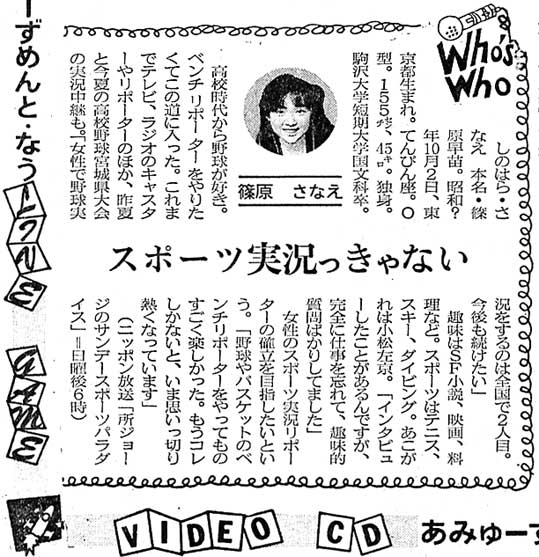 ーずめんと・なう
LIVE
GAME
Who's
Who
しのはら・さ
なえ 本名・篠
原早苗。昭和?
年10月2日、東
京都生まれ。てんびん座。O
型。155㌢、45㌔。独身。
駒沢大学短期大学国文科卒。
篠原 さなえ
高校時代から野球が好き。
ベンチリポーターをやりた
くてこの道に入った。これま
でテレビ、ラジオのキャスタ
ーやリポーターのほか、昨夏
と今夏の高校野球宮城県大会
の実況中継も。「女性で野球実
スポーツ実況っきゃない
況をするのは全国で2人目。
今後も続けたい」
趣味はSF小説、映画、料
理など。スポーツはテニス、
スキー、ダイビング。あこが
れは小松左京。「インタビュ
ーしたことがあるんですが、
完全に仕事を忘れて、趣味的
質問ばかりしてました」
女性のスポーツ実況リポー
ターの確立を目指したいとい
う。「野球やバスケットのベ
ンチリポーターをやってもの
すごく楽しかった。もうコレ
しかないと、いま思いっ切り
熱くなっています」
(ニッポン放送「所ジョー
ジのサンデースポーツパラダ
イス」=日曜後6時)
VIDEO CD
あみゅーず